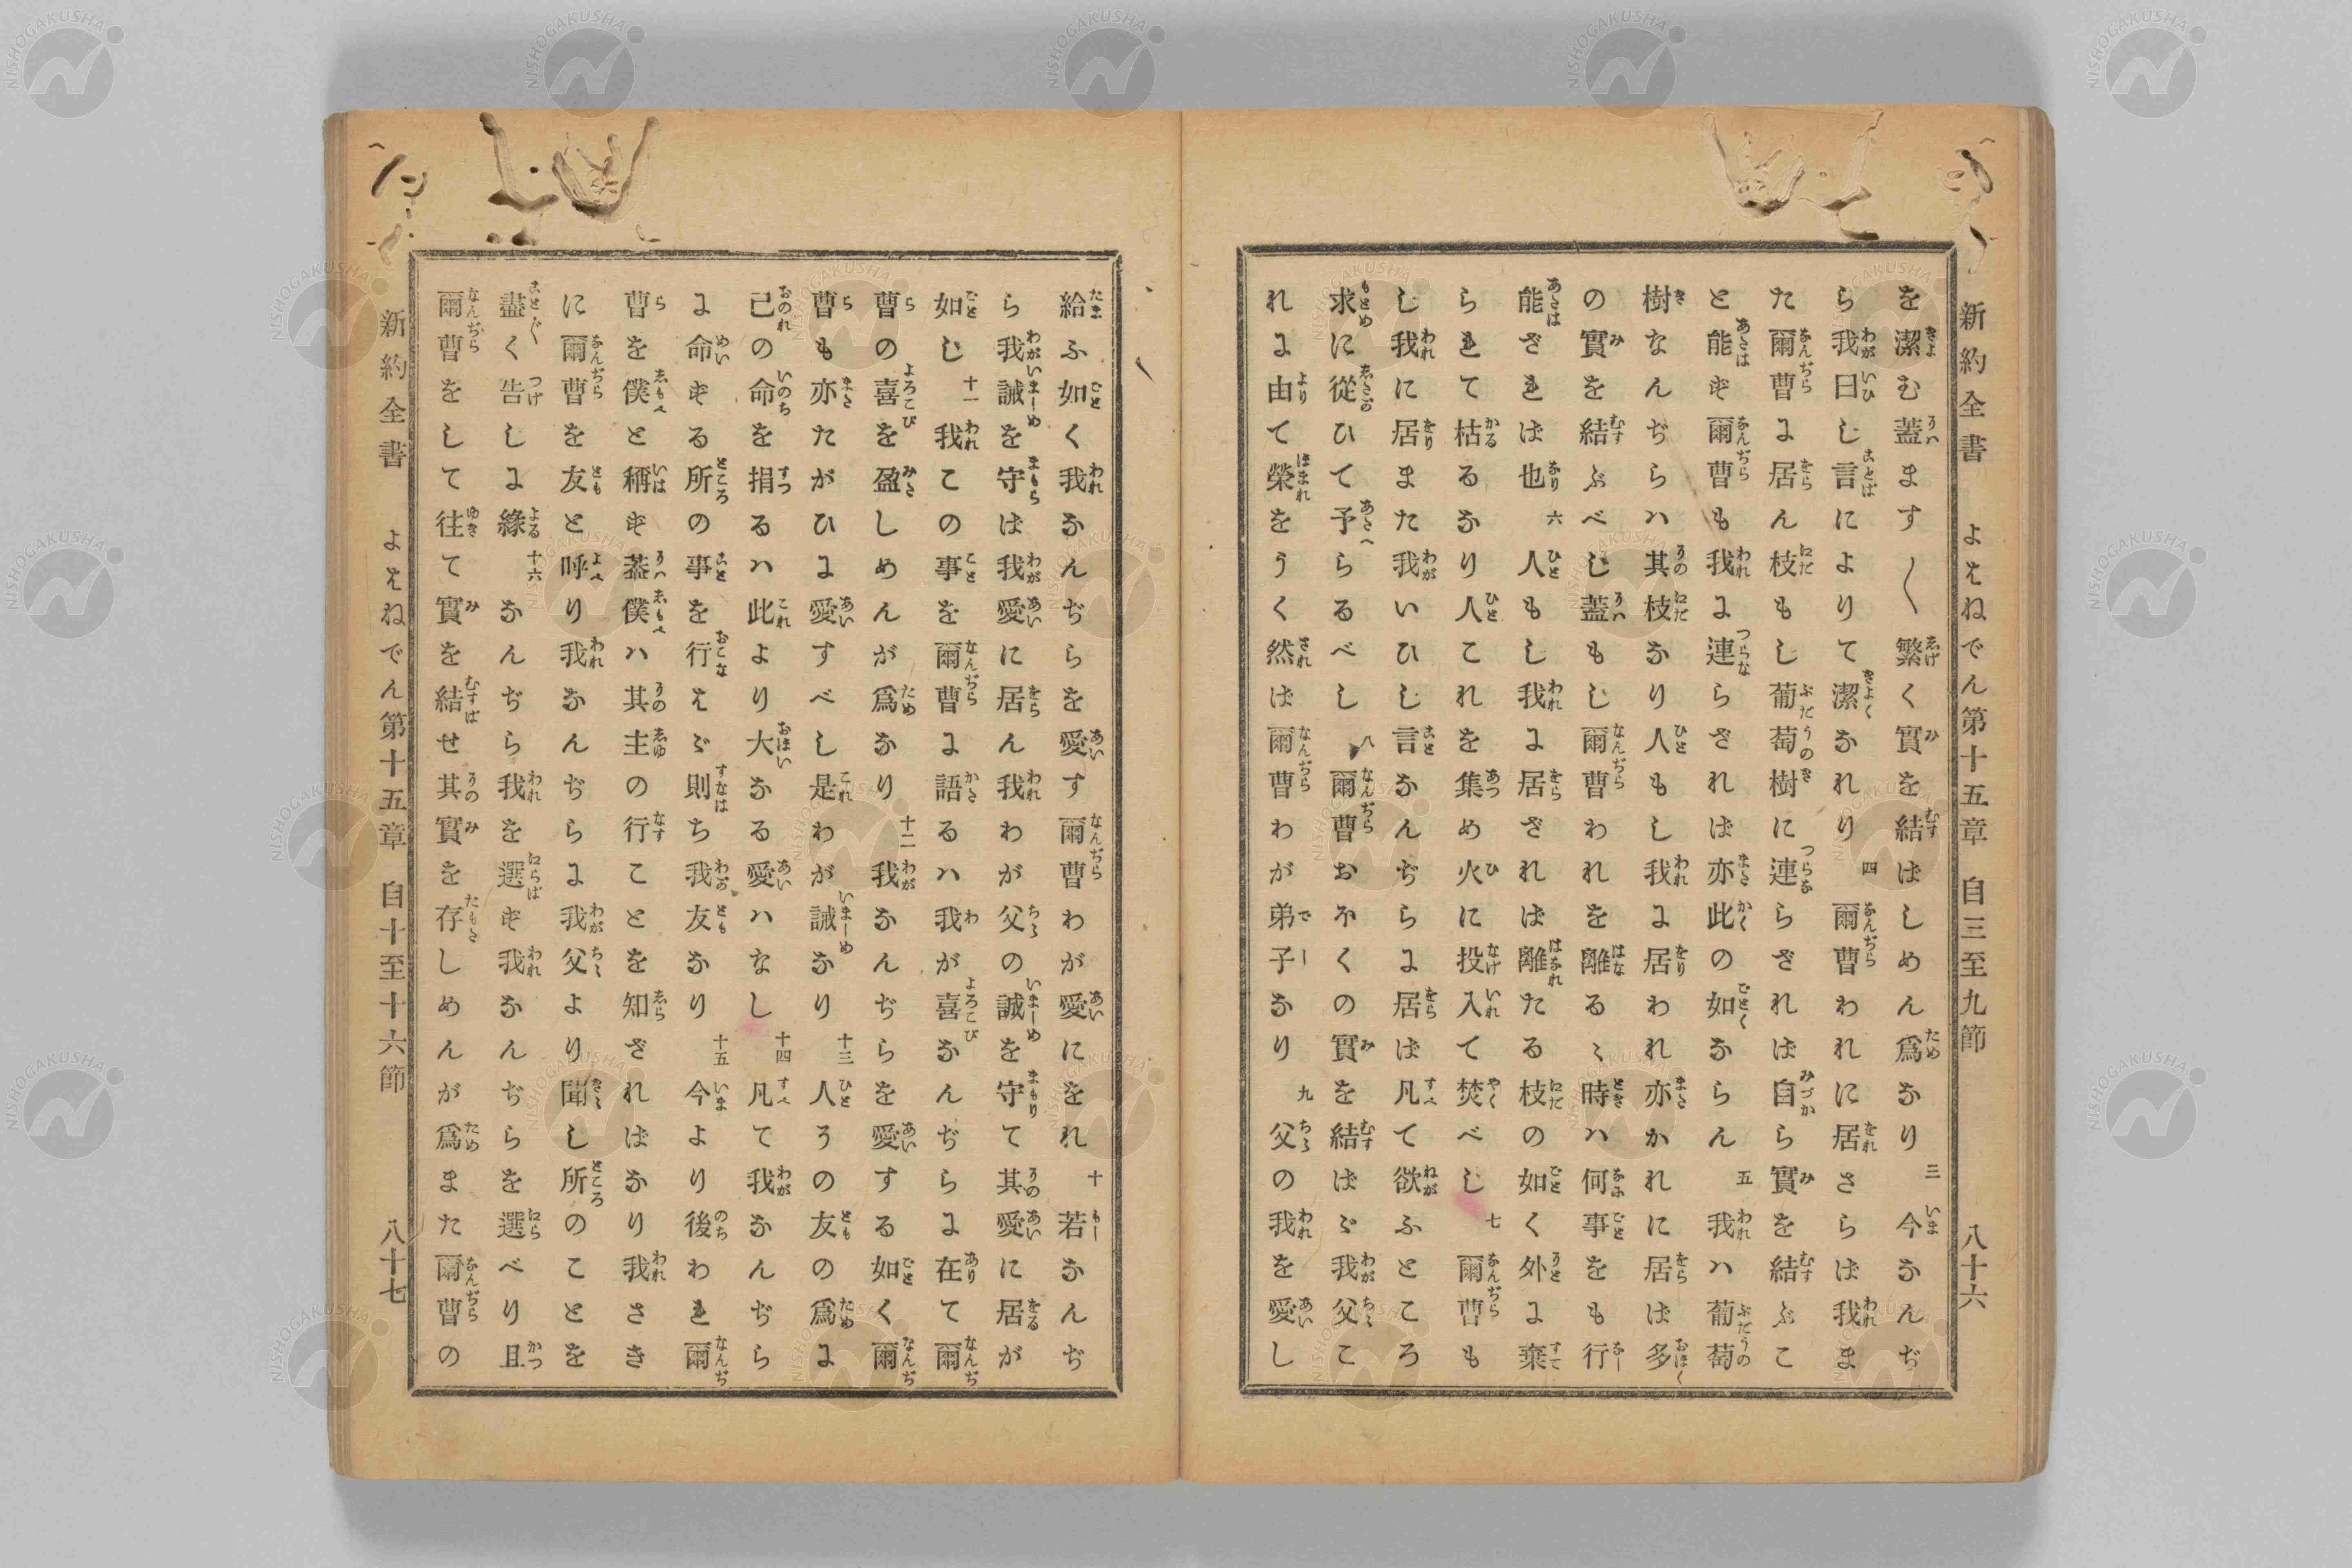 新約全書 よはねでん第十五章 自三至九節 八十六
を潔む蓋ます〳〵繁く實を結はしめん爲なり三今なんぢ
ら我曰し言によりて潔なれり四爾曹われに居さらは我ま
た爾曹に居らん枝もし葡萄樹に連らざれば自ら實を結ぶこ
と能ず爾曹も我に連らざれば亦此の如ならん五我ハ葡萄
樹なんぢらハ其枝なり人もし我に居われ亦かれに居ば多
の實を結ぶべし蓋もし爾曹われを離るゝ時ハ何事をも行
能ざれば也六人もし我に居ざれば離たる枝の如く外に棄
られて枯るなり人これを集め火に投入て焚べし七爾曹も
し我に居また我いひし言なんぢらに居ば凡て欲ふところ
求に從ひて予らるべし八爾曹おほくの實を結ばゞ我父こ
れに由て榮をうく然ば爾曹わが弟子なり九父の我を愛し
給ふ如く我なんぢらを愛す爾曹わが愛にをれ十若なんぢ
ら我誡を守ば我愛に居ん我わが父の誡を守て其愛に居が
如し十一我この事を爾曹に語るハ我が喜なんぢらに在て爾
曹の喜を盈しめんが爲なり十二我なんぢらを愛する如く爾
曹も亦たがひに愛すべし是わが誡なり十三人その友の爲に
己の命を捐るハ此より大なる愛ハなし十四凡て我なんぢら
に命ずる所の事を行はゞ則ち我友なり十五今より後われ爾
曹を僕と稱ず蓋僕ハ其主の行ことを知ざればなり我さき
に爾曹を友と呼り我なんぢらに我父より聞し所のことを
盡く告しに縁十六なんぢら我を選ず我なんぢらを選べり且
爾曹をして往て實を結せ其實を存しめんが爲また爾曹の
新約全書 よはねでん第十五章 自十至十六節 八十七